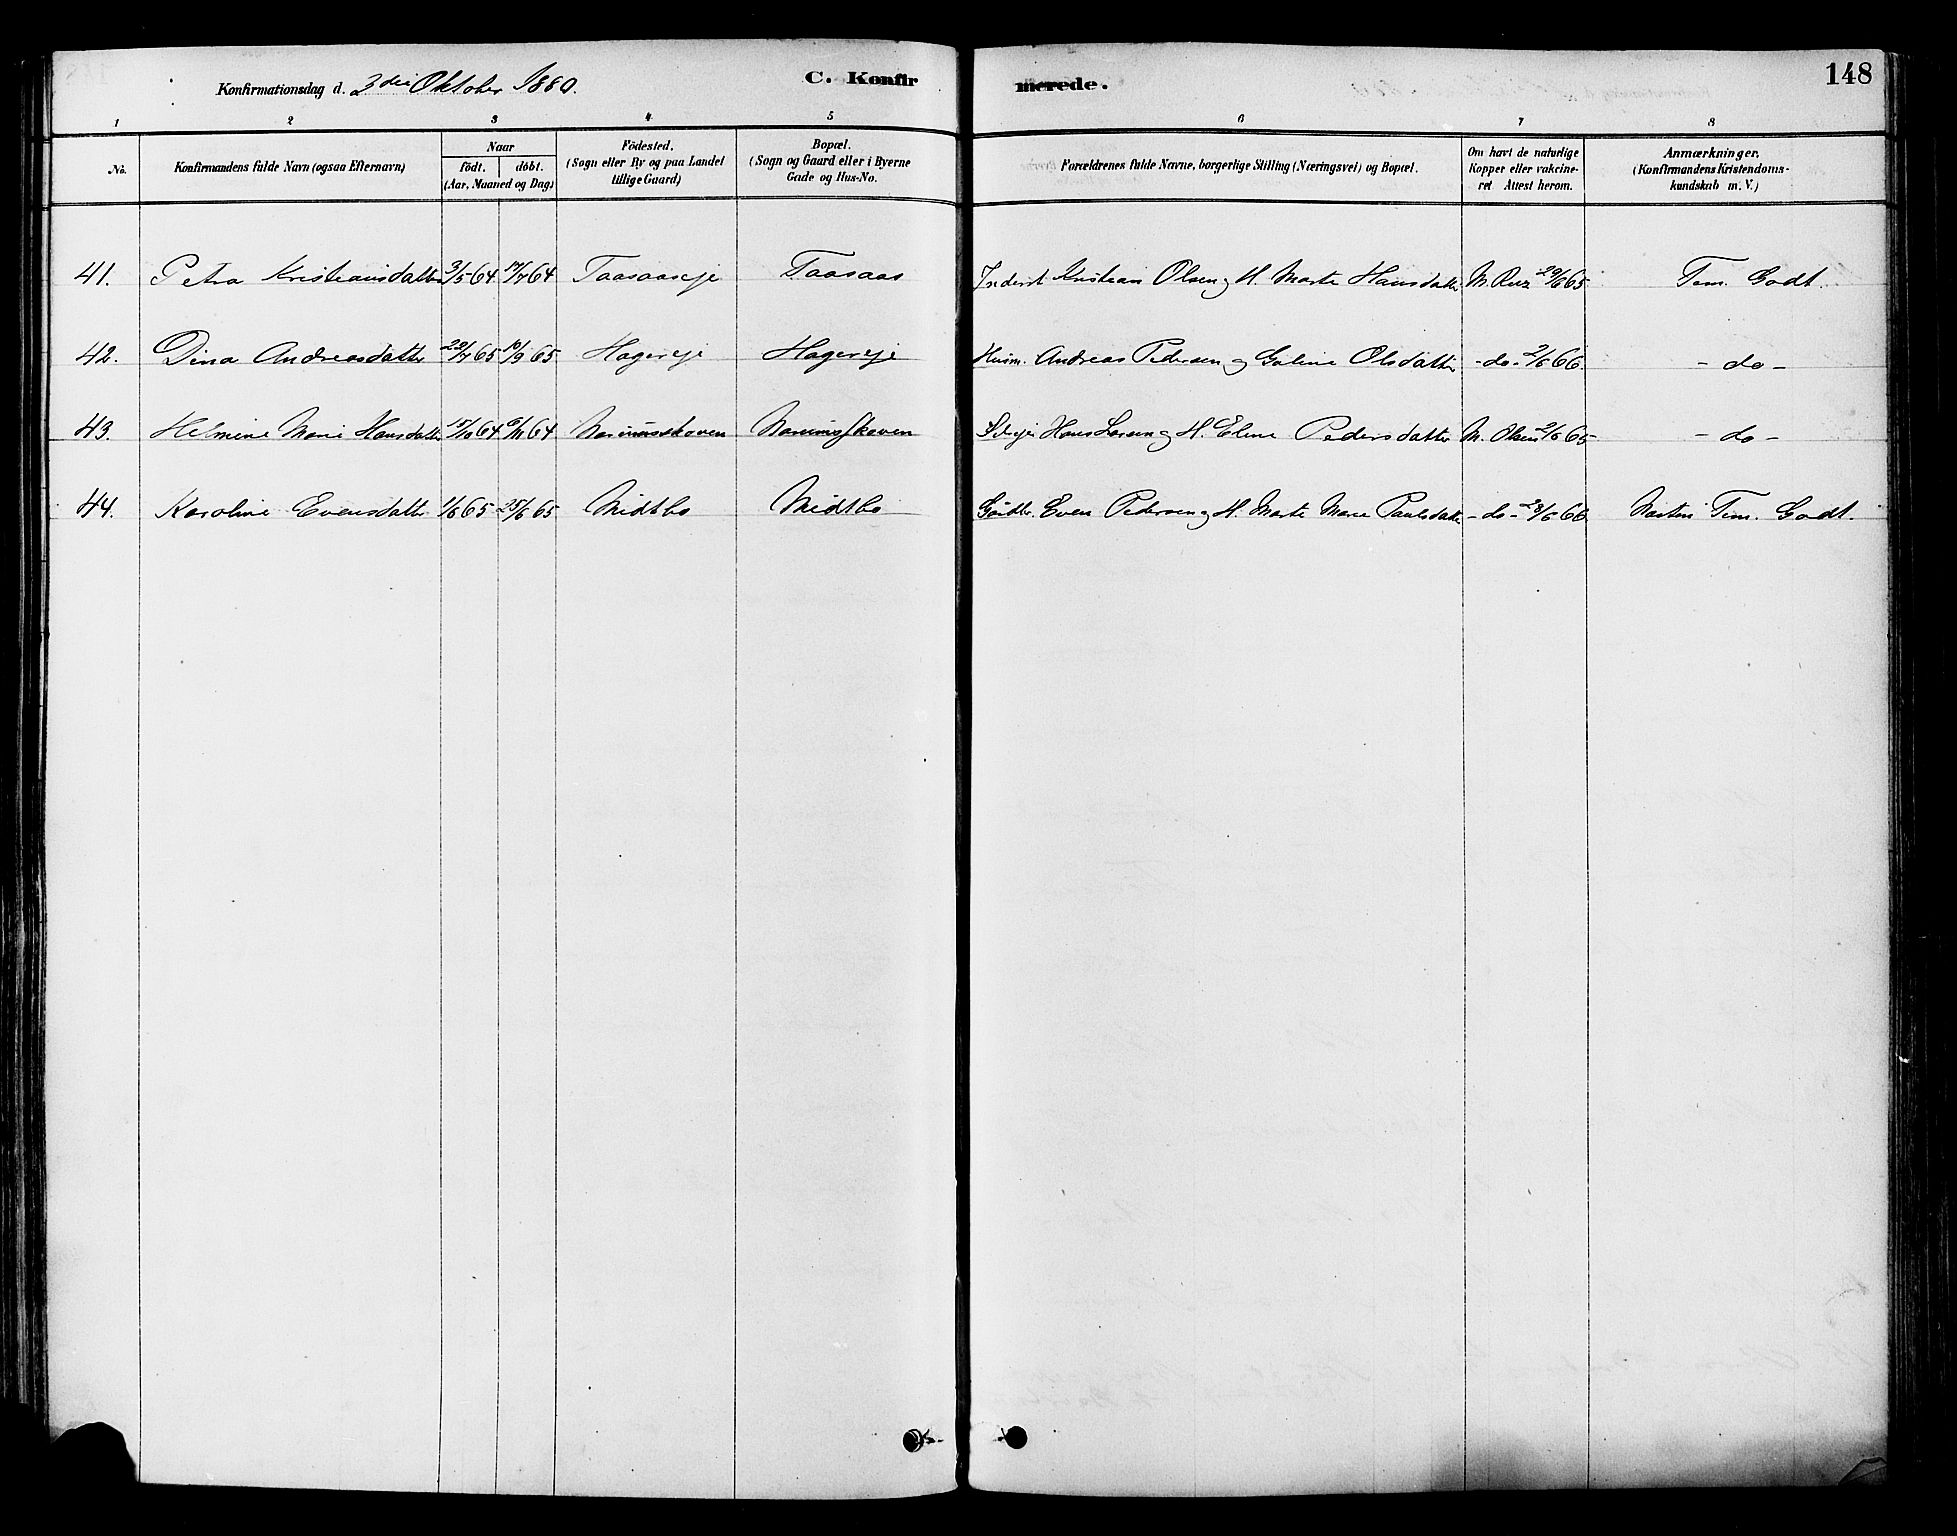 Konfirmationsdag d. 3die Oktober 1880.
C. Konfirmerede.
148
1 2 3 4 5 6 7 8
No.
Konfirmandens fulde Navn (ogsaa Efternavn)
Naar
födt. döbt.
(Aar, Maaned og Dag)
Födested.
(Sogn eller By og paa Landet
tillige Gaard)
Bopæl.
(Sogn og Gaard eller i Byerne
Gade og Hus-No.
Forældrenes fulde Navne, borgerlige Stilling (Næringsvei) og Bopæl.
Om havt de naturlige
Kopper eller vakcine-
ret Attest herom.
Anmærkninger.
(Konfirmandens Kristendoms-
kundskab m. V.)
41. Petra Kristiansdatter 3/5 64 17/7 64 Taasaaseje Taasaas Inderst Kristian Olsen og H. Marte Hansdatter M. Ruz 29/6 65 Tem. Godt.
42. Dina Andreasdatter 22/7 65 10/9 65 Hagereje Hagereje Husm. Andreas Pedersen og Goline Olsdatter - do - 2/6 66. - do -
43. Helmine Marie Hansdatter 15/10 64 6/11 64 Selvejer Hans Larsen og H. Eline Pedersdatter M. Olsen 2/6 65 - do -
44. Karoline Evensdatter 1/6 65 25/6 65 Midtbo Midtbo Gaardbr. Even Pedersen og H. Marte Marie Paulsdatter - do - 28/6 66. Næsten Tem. Godt.